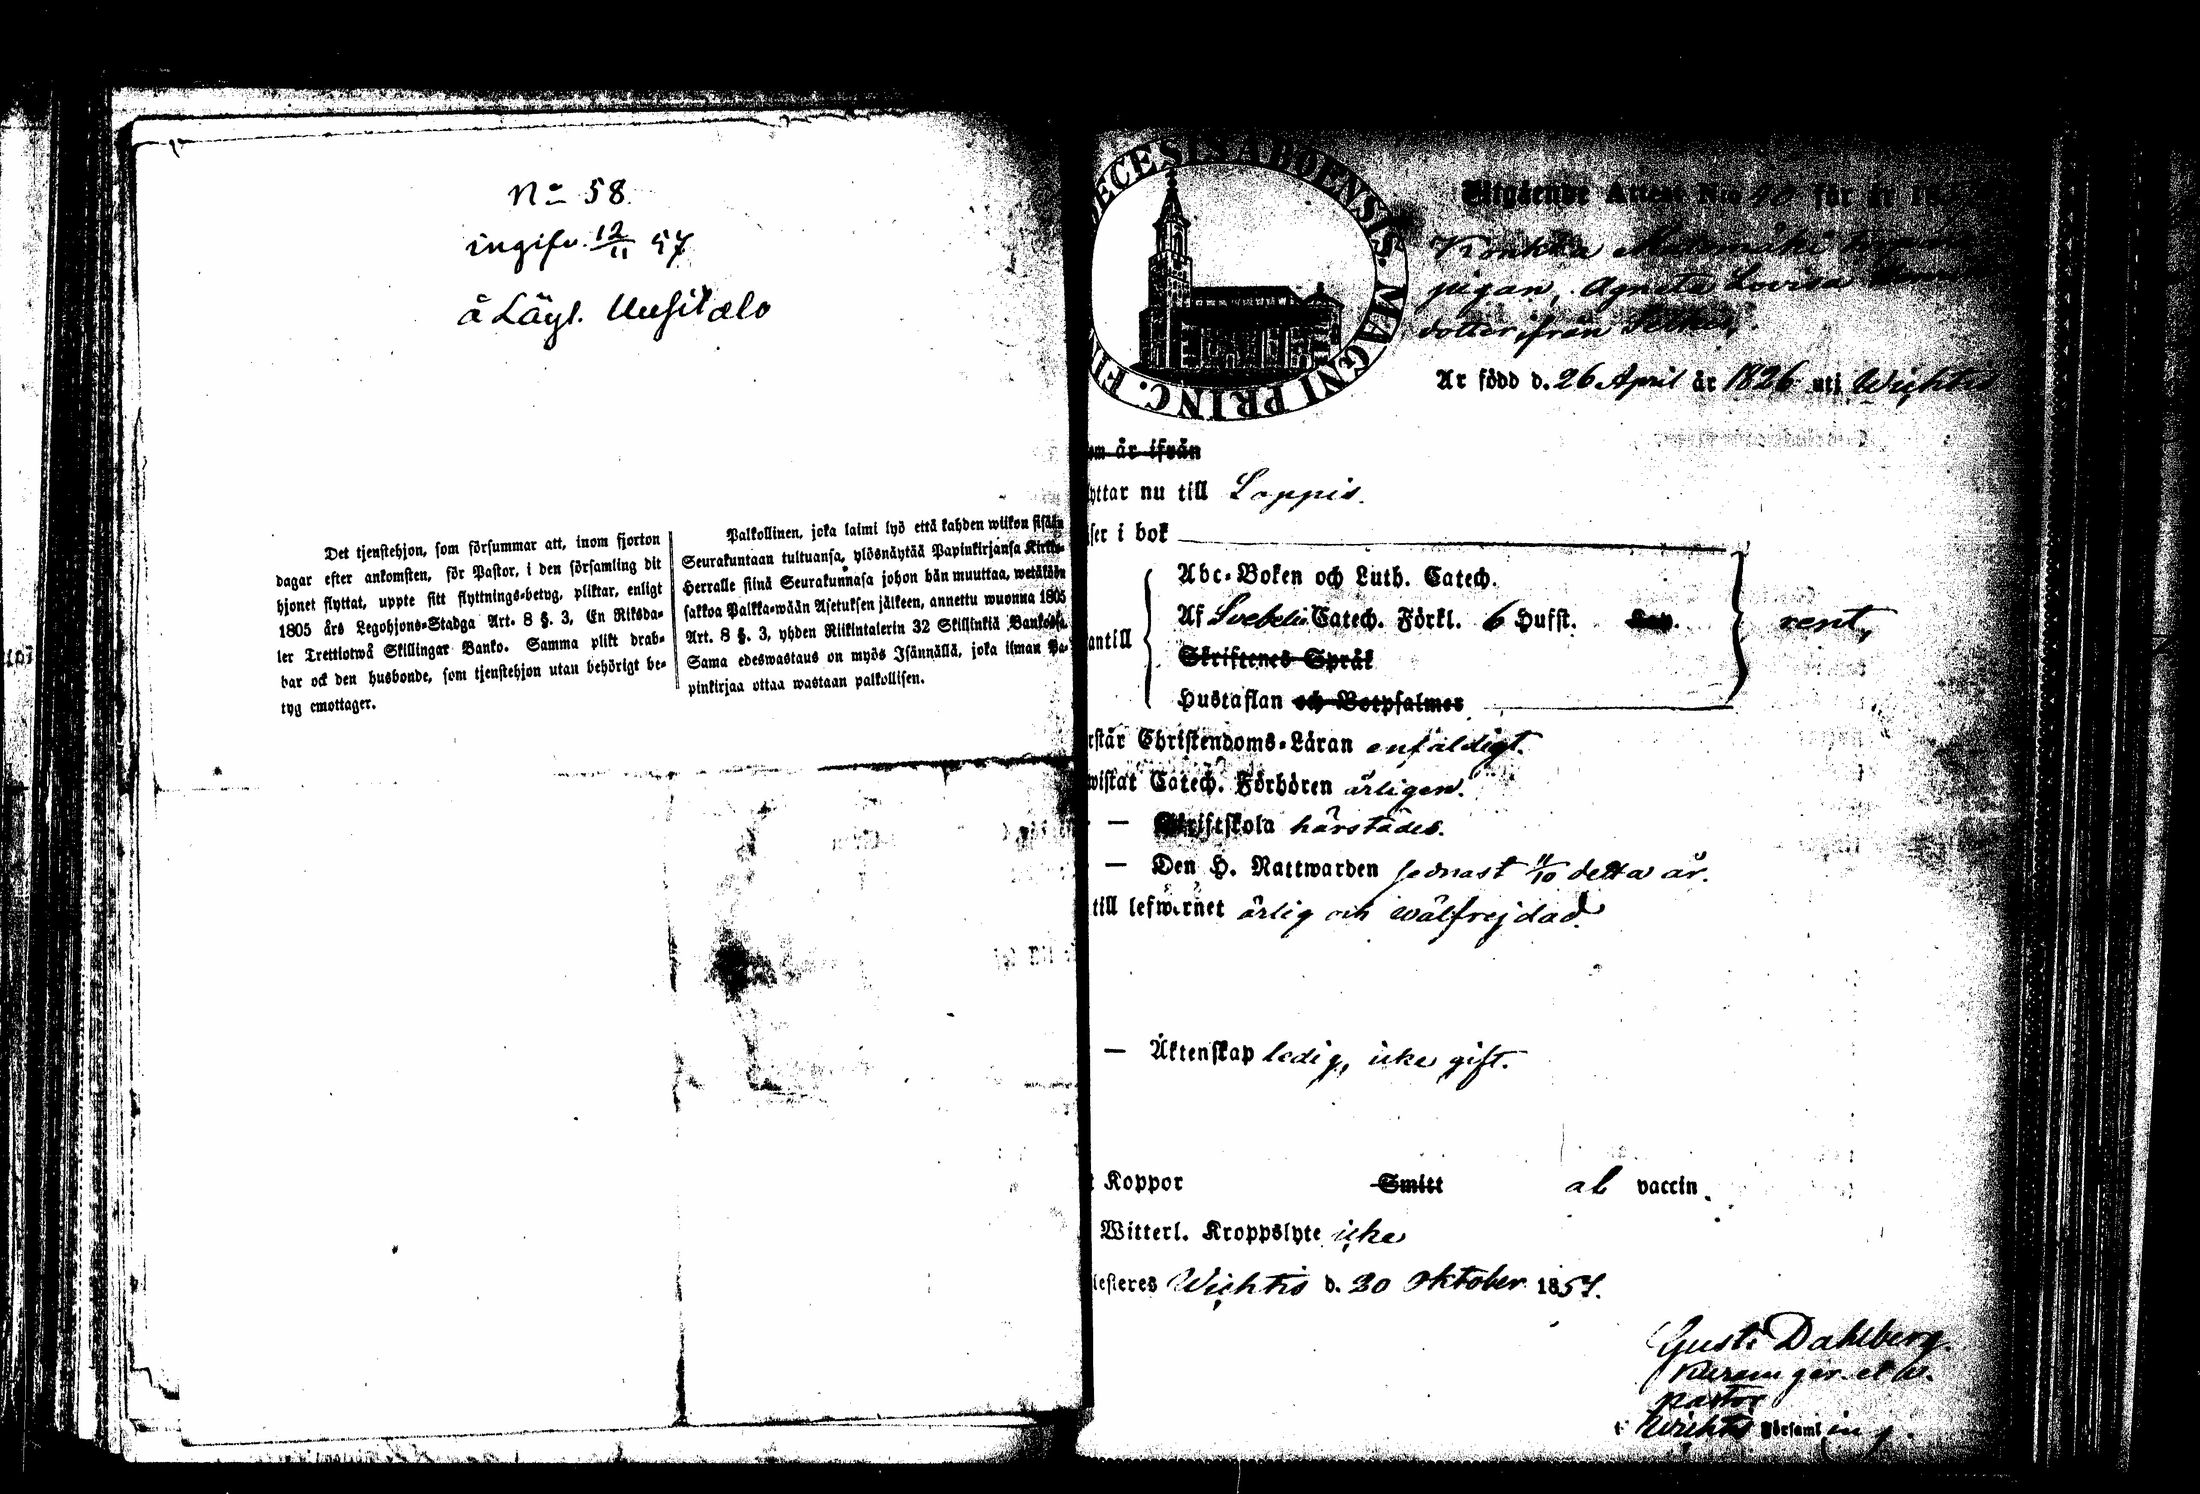 No 58
ingifv. 12/11 57
å Läyl. Uusitalo
Det tjenstehjon, som försummar att, inom fjorton
dagar efter ankomsten, för Pastor, i den församling dit
hjonet flyttat, uppte sitt flyttnings-betyg, pliktar, enligt
1805 års Legohjons-Stadga Art. 8 §. 3, En Riksda-
ler Trettiotwå Skillingar Banko. Samma plikt drab-
bar ock den husbonde, som tjenstehjon utan behörigt be-
tyg emottager.
Palkollinen, joka laimi lyö että kahden wiikon sisälle
Seurakuntaan tultuansa, ylösnäytää Papinkirjansa Kirkko-
Herralle siinä Seurakunnasa johon hän muuttaa, wetäköön
sakkoa Palkka-wään Asetuksen jälkeen, annettu wuonna 1805
Art. 8 §. 3, yhden Riikintalerin 32 Skillinkiä Bankossa.
Sama edeswastaus on myös Isännällä, joka ilman Pa-
pinkirjaa ottaa wastaan palkollisen.
ECESIS ABOENSIS. MAGNI PRINC. FI
Utgående Attest N:ro 90 för år 18
pigan, Agneta Lovisa
dotter ifrån
Är född d. 26 April år 1826 uti Wichtis
om är ifrån
yttar nu till Loppis.
ser i bok
Abc-Boken och Luth. Catech.
Af Svebelii Catech. Förkl. 6 Hufst.
antill
rent,
Skriftenes Språk
Hustaflan och Botpsalmer
rstår Christendoms-Läran enfaldigt.
wistat Catech. Förhören årligen.
— Skriftskola härstädes.
— Den H. Nattwarden sednast 11/10 detta år.
till lefwernet ärlig och wälfrejdad.
— Äktenskap ledig, icke gift.
t Koppor Smitt af vaccin.
Witterl. Kroppslyte icke
esteres Wichtis d. 20 Oktober 1857.
Gust: Dahlberg.
pastor
i Wichtis Församling.